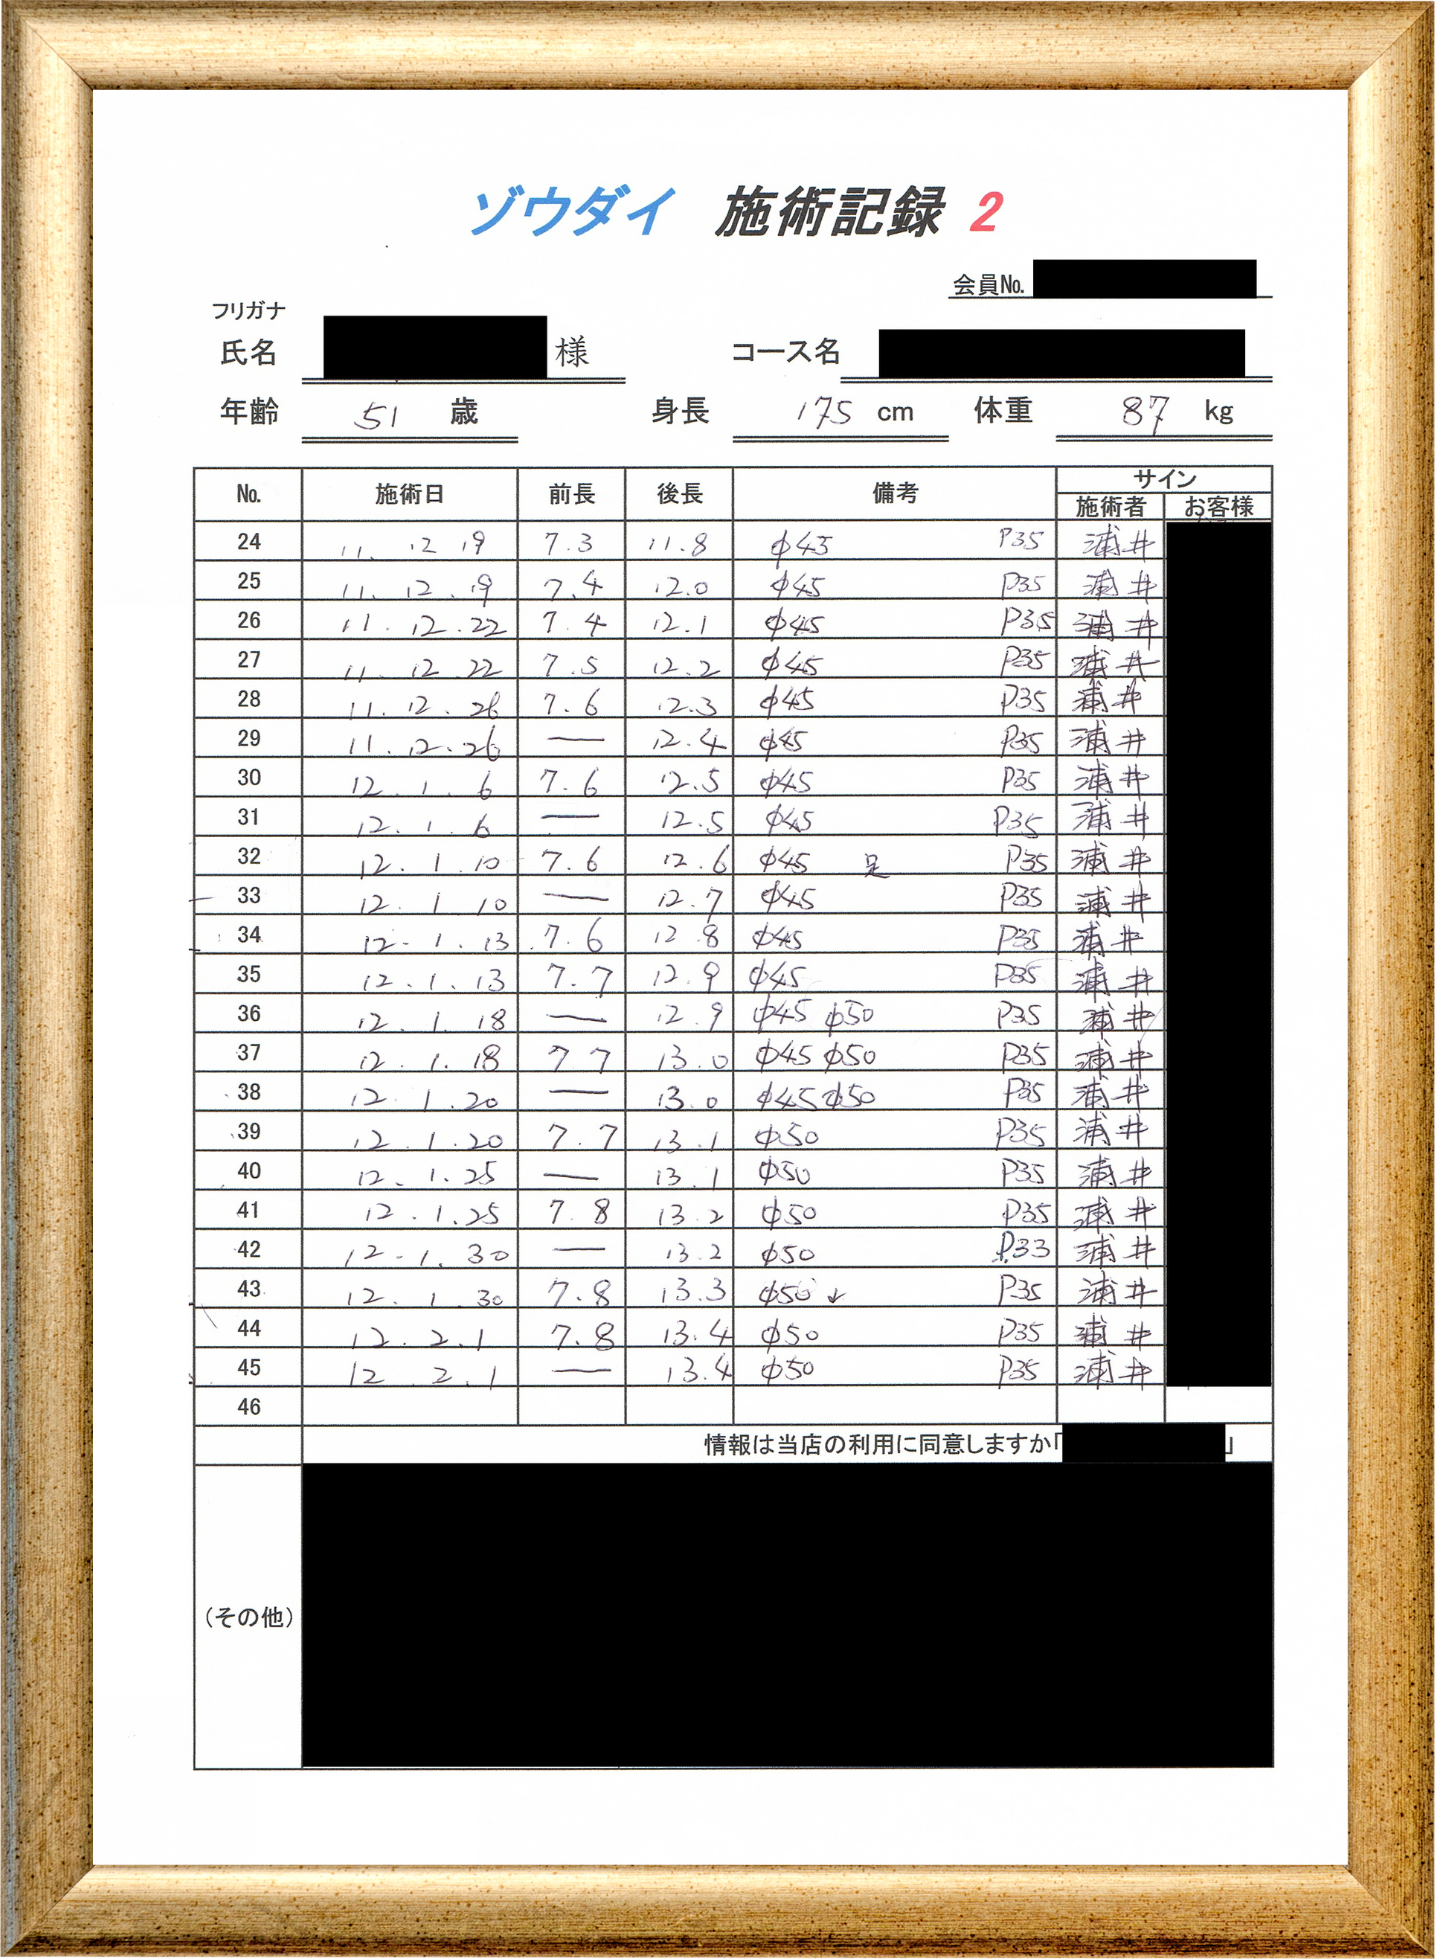 ゾウダイ 施術記録 2
会員No.
フリガナ
氏名 様 コース名
年齢 51 歳 身長 175 cm 体重 87 kg
No. 施術日 前長 後長 備考 サイン
施術者 お客様
24 11. 12 19 7.3 11.8 φ45 P35 浦井
25 11. 12. 19 7.4 12.0 φ45 P35 浦井
26 11. 12. 22 7.4 12.1 φ45 P35 浦井
27 11. 12 22 7.5 12.2 φ45 P35 浦井
28 11. 12. 26 7.6 12.3 φ45 P35 浦井
29 11. 12. 26 — 12.4 φ45 P35 浦井
30 12. 1. 6 7.6 12.5 φ45 P35 浦井
31 12. 1. 6 — 12.5 φ45 P35 浦井
32 12. 1. 10 7.6 12.6 φ45 足 P35 浦井
33 12. 1 10 — 12.7 φ45 P35 浦井
34 12. 1. 13 7.6 12.8 φ45 P35 浦井
35 12. 1. 13 7.7 12.9 φ45 P35 浦井
36 12. 1. 18 — 12.9 φ45 φ50 P35 浦井
37 12. 1. 18 7.7 13.0 φ45 φ50 P35 浦井
38 12. 1. 20 — 13.0 φ45 φ50 P35 浦井
39 12. 1. 20 7.7 13.1 φ50 P35 浦井
40 12. 1. 25 — 13.1 φ50 P35 浦井
41 12. 1. 25 7.8 13.2 φ50 P35 浦井
42 12. 1. 30 — 13.2 φ50 P33 浦井
43 12. 1. 30 7.8 13.3 φ50 ↓ P35 浦井
44 12. 2. 1 7.8 13.4 φ50 P35 浦井
45 12. 2. 1 — 13.4 φ50 P35 浦井
46
情報は当店の利用に同意しますか「 」
(その他)